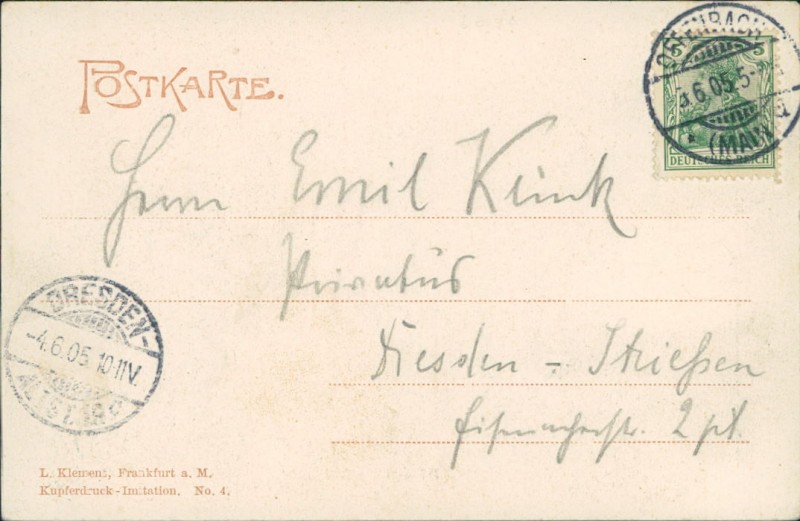 POSTKARTE.
OFFENBACH
5 5
3.6.05.5-
(MAIN)
DEUTSCHES REICH
Herrn Emil Klink
Privatus
Dresden - Striessen
2 pt.
DRESDEN-
-4.6.05 10-11V.
ALTST.
L. Klement, Frankfurt a. M.
Kupferdruck-Imitation. No. 4.